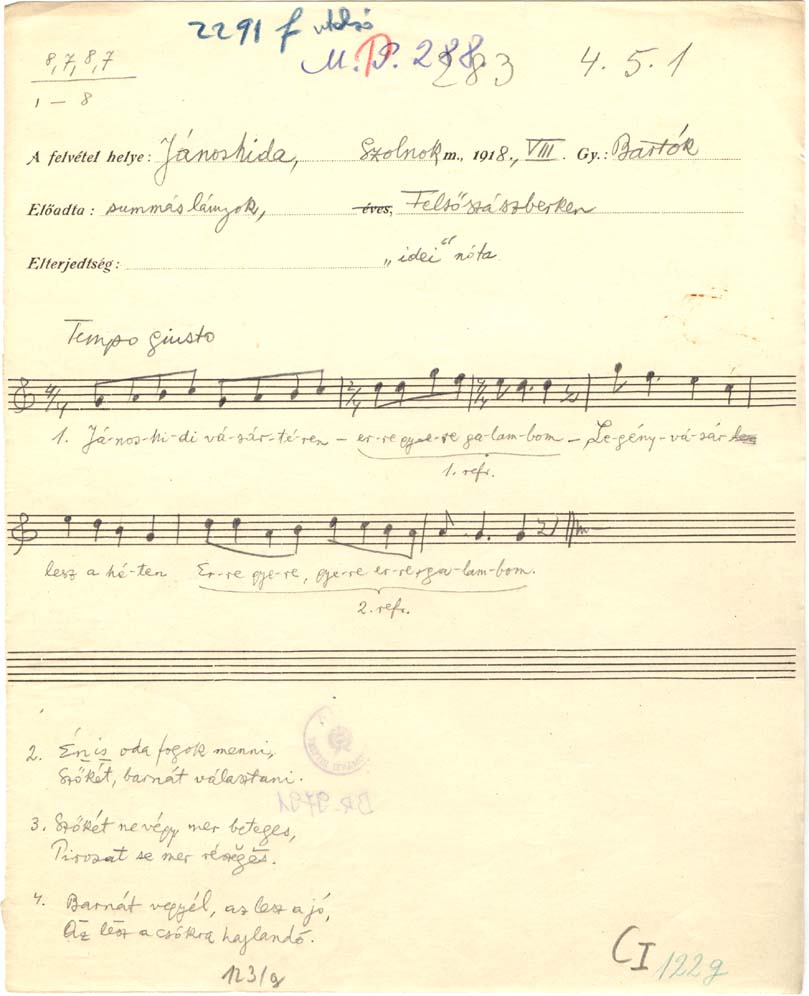 2291 f utolsó
8,7,8,7
M. P. 288.
283
4. 5. 1
1 – 8
A felvétel helye: Jánoshida, Szolnok m., 1918., VIII. Gy.: Bartók
Előadta: summás lányok, éves, Felsőszászberken
Elterjedtség: „idei" nóta
Tempo giusto
4/4 2/4 4/4
1. Já-nos-hi-di vá-sár-té-ren – er-re gye-re ga-lam-bom – Le-gény-vá-sár
1. refr.
lesz a hé-ten Er-re gye-re, gye-re er-re ga-lam-bom.
2. refr.
2. Én is oda fogok menni,
Szőkét, barnát választani.
BR 9791
3. Szőkét ne végy mer beteges,
Pirosat se mer részĕgĕs.
4. Barnát vegyél, az lesz a jó,
Az lesz a csókra hajlandó.
123/g
CI 122g